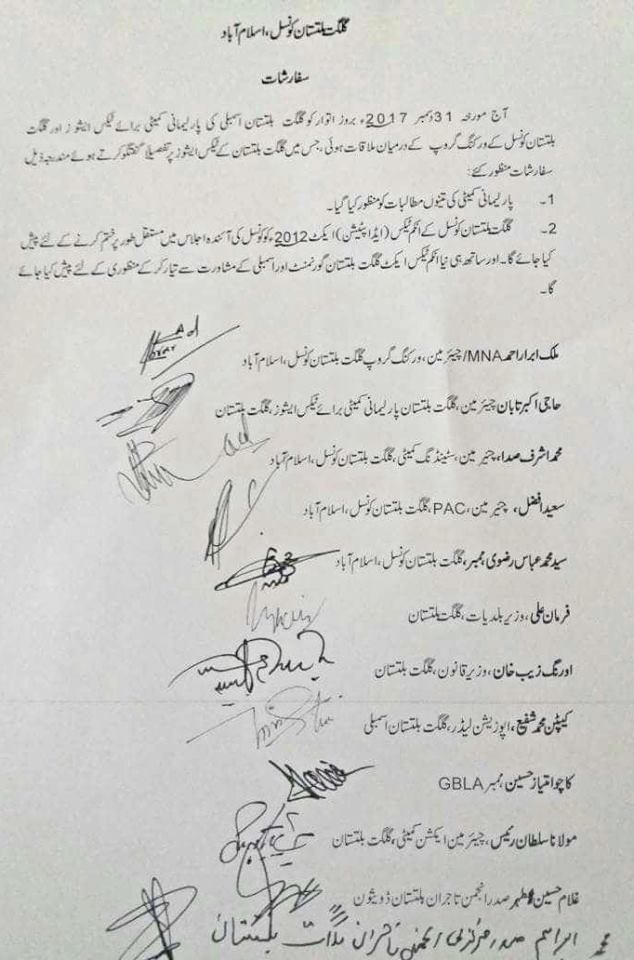 گلگت بلتستان کونسل، اسلام آباد
سفارشات
آج مورخہ 31 دسمبر 2017ء بروز اتوار کو گلگت بلتستان اسمبلی کی پارلیمانی کمیٹی برائے ٹیکس ایشوز اور گلگت
بلتستان کونسل کے ورکنگ گروپ کے درمیان ملاقات ہوئی، جس میں گلگت بلتستان کے ٹیکس ایشوز پر تفصیلاً گفتگو کرتے ہوئے مندرجہ ذیل
سفارشات منظور کئے:
1۔ پارلیمانی کمیٹی کی تینوں مطالبات کو منظور کیا گیا۔
2۔ گلگت بلتستان کونسل کے انکم ٹیکس (ایڈاپٹیشن) ایکٹ 2012ء کو کونسل کی آئندہ اجلاس میں مستقل طور پر ختم کرنے کے لئے پیش
کیا جائے گا۔ اور ساتھ ہی نیا انکم ٹیکس ایکٹ گلگت بلتستان گورنمنٹ اور اسمبلی کے مشاورت سے تیار کر کے منظوری کے لئے پیش کیا جائے
گا۔
ملک ابرار احمد MNA/چیئرمین، ورکنگ گروپ گلگت بلتستان کونسل، اسلام آباد
حاجی اکبر تابان چیئرمین، گلگت بلتستان پارلیمانی کمیٹی برائے ٹیکس ایشوز، گلگت بلتستان
محمد اشرف صدا، چئیرمین، سٹینڈنگ کمیٹی، گلگت بلتستان کونسل، اسلام آباد
سعید افضل، چئیرمین، PAC، گلگت بلتستان کونسل، اسلام آباد
سید محمد عباس رضوی، ممبر، گلگت بلتستان کونسل، اسلام آباد
فرمان علی، وزیر بلدیات، گلگت بلتستان
اورنگ زیب خان، وزیر قانون، گلگت بلتستان
کیپٹن محمد شفیع، اپوزیشن لیڈر، گلگت بلتستان اسمبلی
کاچو امتیاز حسین، ممبر GBLA
مولانا سلطان رئیس، چیئرمین ایکشن کمیٹی، گلگت بلتستان
غلام حسین اطہر صدر انجمن تاجران بلتستان ڈویژن
محمد ابراہیم صدر مرکزی انجمن تاجران گلگت بلتستان